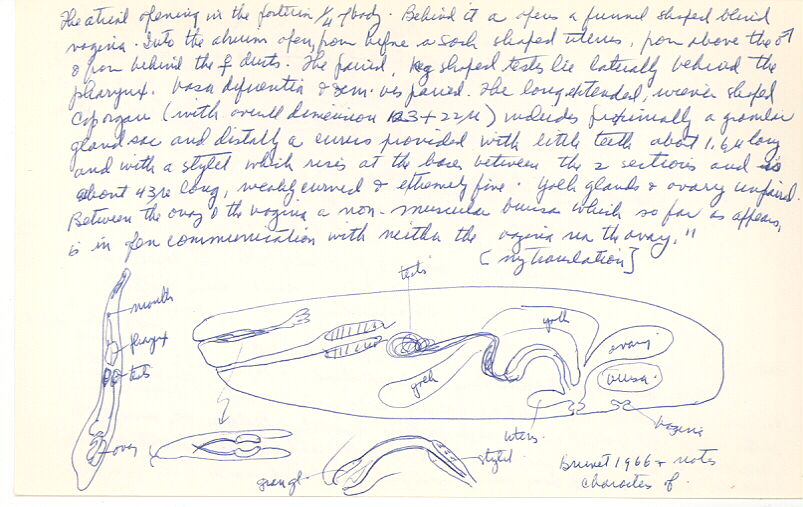 The atrial opening in the posterior 1/4 of body. Behind it a opens a funnel shaped blind
vagina. Into the atrium open, from before a sack shaped uterus, from above the ♂
& from behind the ♀ ducts. The paired, egg shaped testes lie laterally behind the
pharynx. Vasa deferentia & sem. ves paired. The long extended, shaped
Cop organ (with overall dimension 123 + 22 µ) includes proximally a granular
gland sac and distally a cirrus provided with little teeth about 1,6 µ long
and with a stylet which rises at the base between the 2 sections and is
about 43 µ long, weakly curved & extremely fine. Yolk glands & ovary unpaired.
Between the ovary & the vagina a non-muscular bursa which so far as appears,
is in open communication with neither the vagina nor the ovary."
[my translation]
mouth
pharynx
testis
ovary
testis
yolk
yolk
ovary
bursa
uterus
vagina
stylet
gran gl.
Brunet 1966 + notes
characters of.